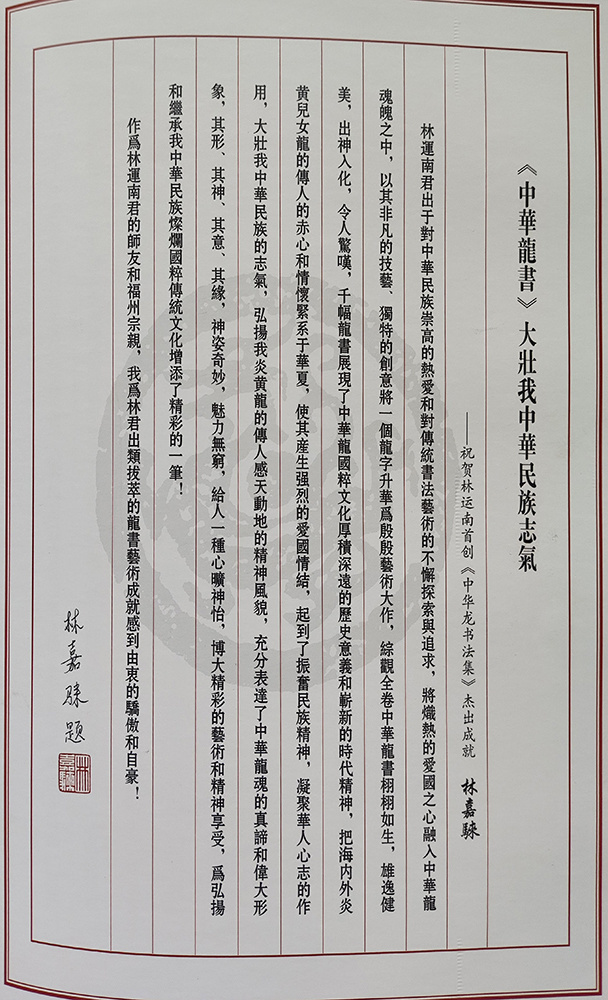 《中華龍書》大壯我中華民族志氣
——祝贺林运南首创《中华龙书法集》杰出成就　林嘉騋
林運南君出于對中華民族崇高的熱愛和對傳統書法藝術的不懈探索與追求，將熾熱的愛國之心融入中華龍
魂魄之中，以其非凡的技藝、獨特的創意將一個龍字升華爲殷殷藝術大作，綜觀全卷中華龍書栩栩如生，雄逸健
美，出神入化，令人驚嘆，千幅龍書展現了中華龍國粹文化厚積深遠的歷史意義和嶄新的時代精神，把海内外炎
黄兒女龍的傳人的赤心和情懷緊系于華夏，使其産生强烈的愛國情結，起到了振奮民族精神，凝聚華人心志的作
用，大壯我中華民族的志氣，弘揚我炎黄龍的傳人感天動地的精神風貌，充分表達了中華龍魂的真諦和偉大形
象，其形、其神、其意、其緣，神姿奇妙，魅力無窮，給人一種心曠神怡，博大精彩的藝術和精神享受，爲弘揚
和繼承我中華民族燦爛國粹傳統文化增添了精彩的一筆！
作爲林運南君的師友和福州宗親，我爲林君出類拔萃的龍書藝術成就感到由衷的驕傲和自豪！
林嘉騋題